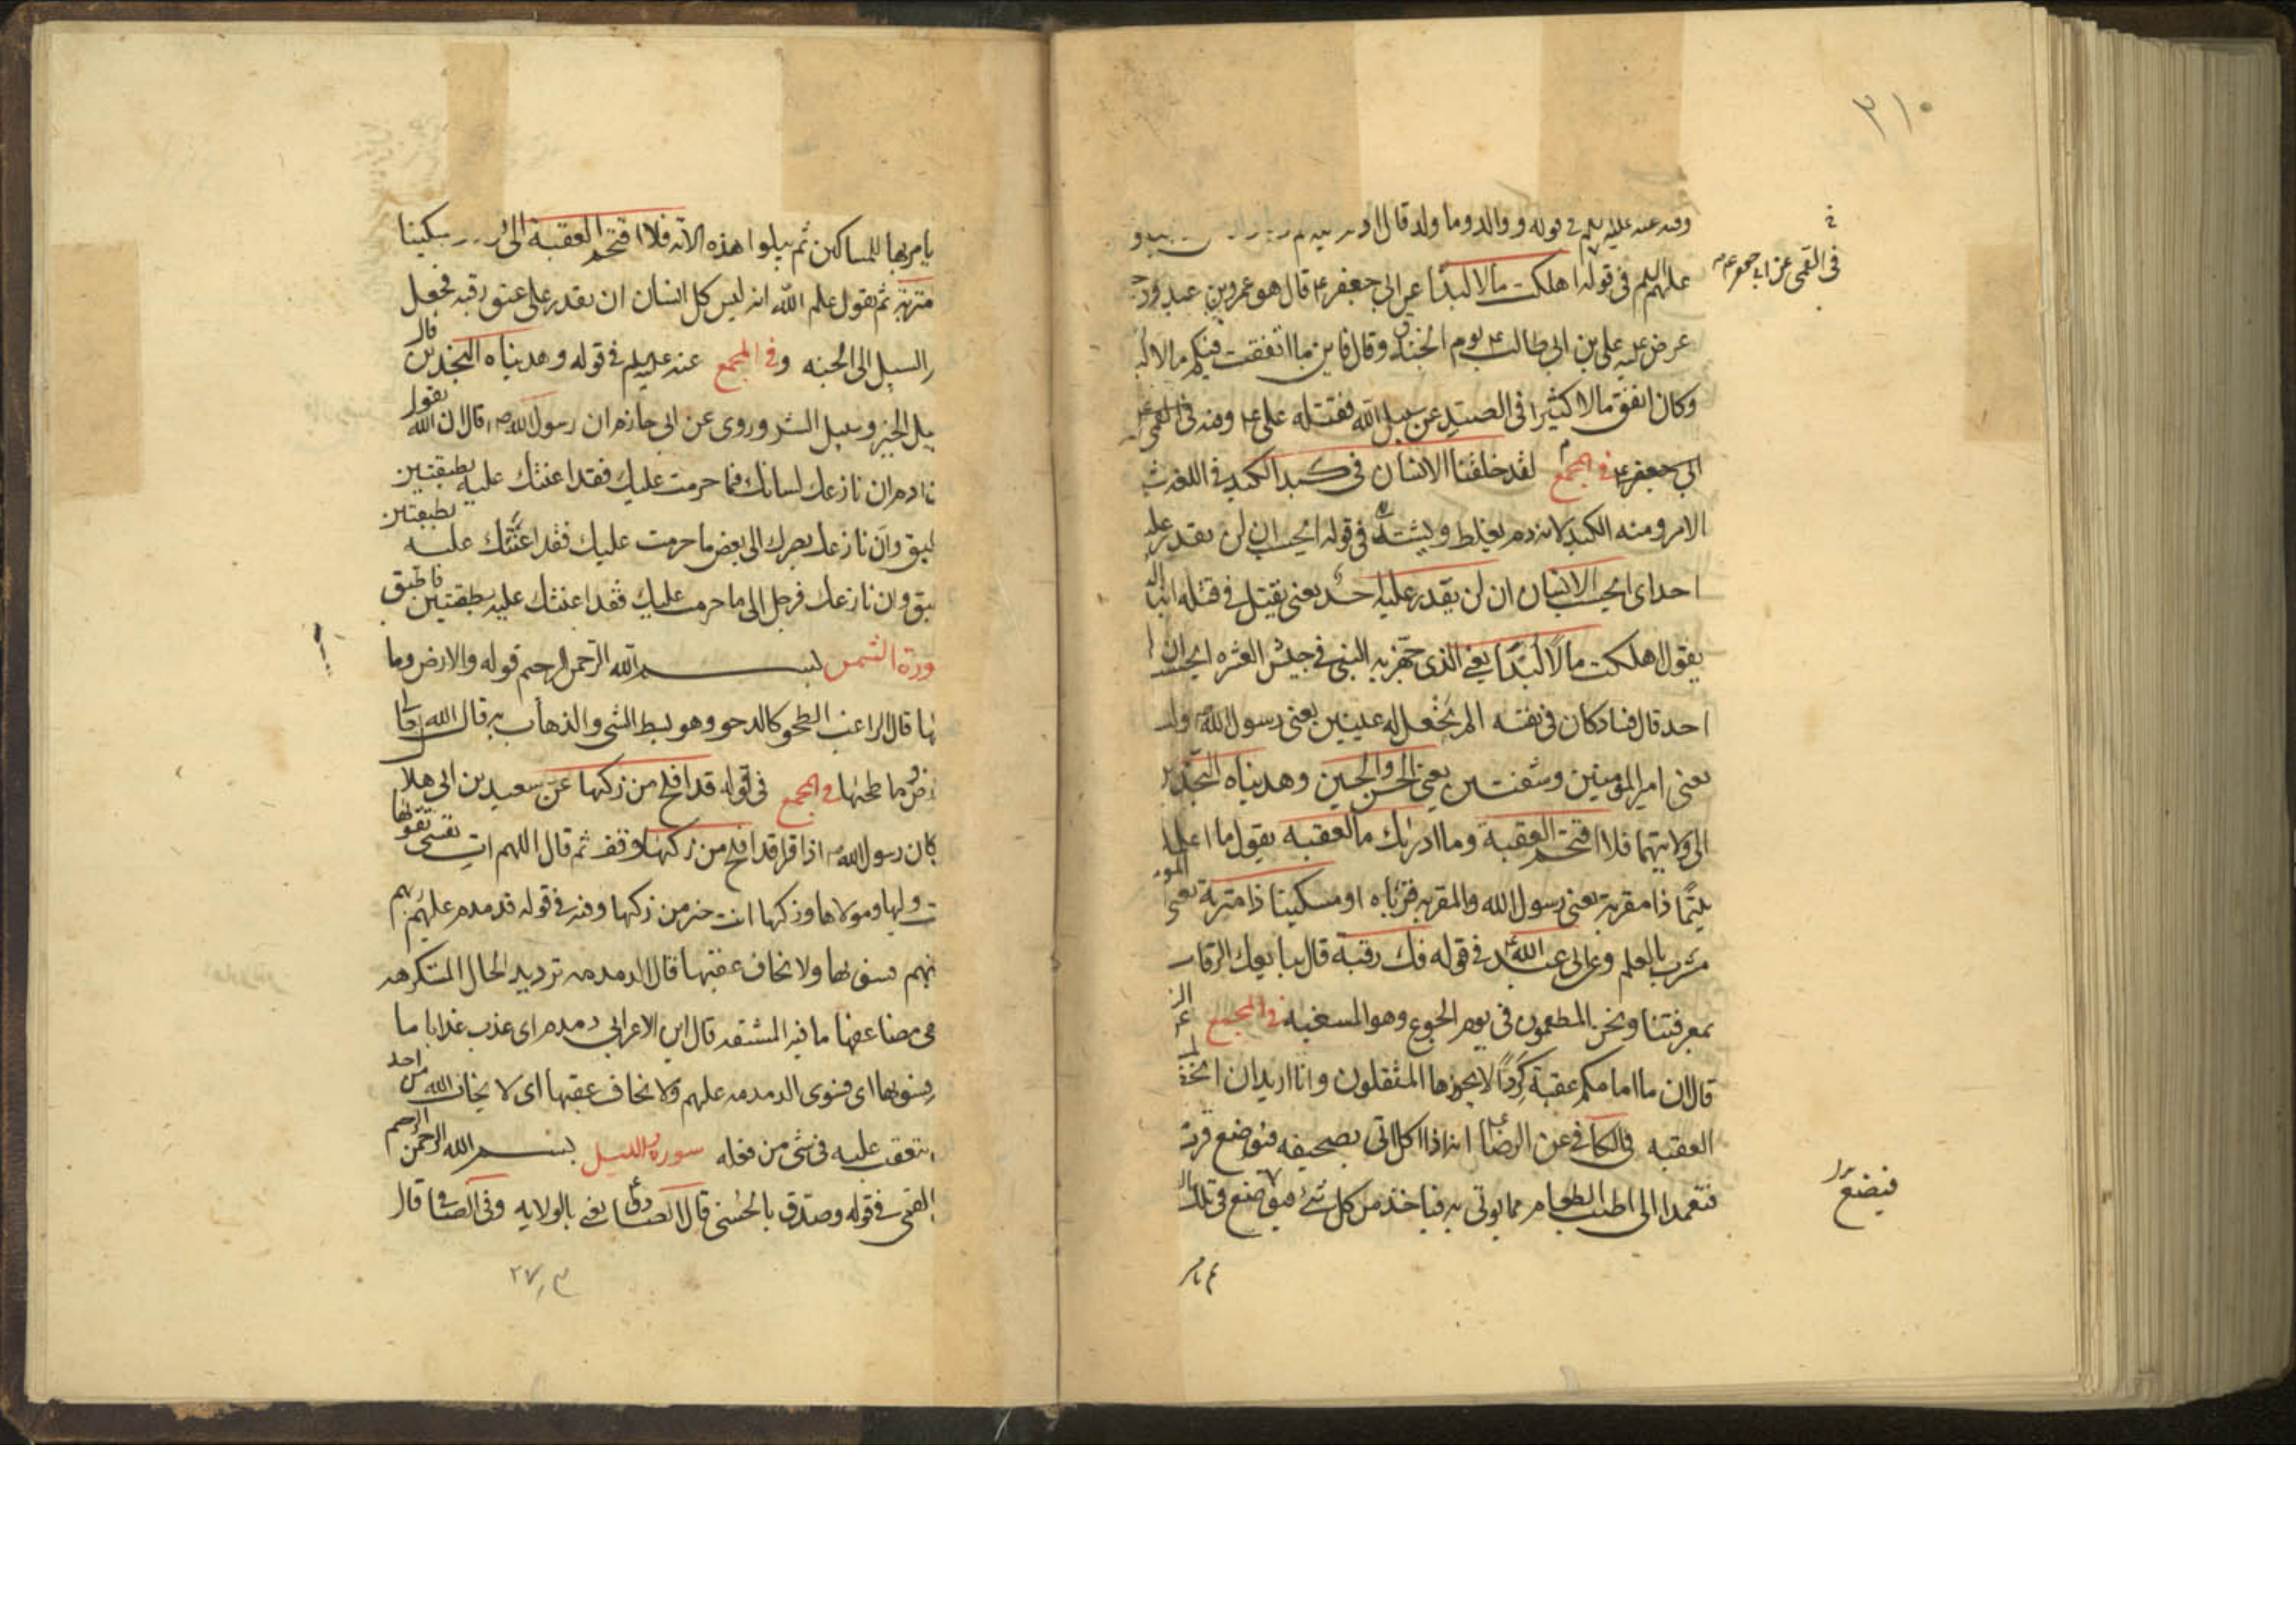 ٣١٠
وفيه عنه عليه السلم في قوله ووالد وما ولد قال ادم
في القمى عن ابي جعفر ع
عليهم السلم في قوله اهلكت مالا لبدًا عن ابي جعفر ع قال هو عمرو بن عبد ود
عرض عليه علي بن ابي طالب ع يوم الخندق وقال فاين ما انفقت فيكم مالا لبدا
وكان انفق مالا كثيرا في الصد عن سبيل الله فقتله على ع ومنه في القمى
ابي جعفر ع في المجمع لقد خلقنا الانسان في كبد الكبد في اللغة
الامر ومنه الكبد لانه دم يغلظ ويشتد في قوله ايحسب ان لن يقدر عليه
احد اى ايحسب الانسان ان لن يقدر عليه احد يعنى يقتل في قتله ابنة
يقول اهلكت مالًا لبدًا يعنى الذى جهز به النبى في جيش العشره ايحسب ان
احد قال فساد كان في نفسه الم نجعل له عينين يعنى رسول الله
يعنى امير المومنين وشفتين يعنى الحسن والحسين وهديناه النجدين
الى ولايتهما فلا اقتحم العقبة وما ادريك ما العقبه يقول ما اعلمك
يتيمًا ذا مقربة يعنى رسول الله والمقربه قرباه او مسكينا ذا متربة يعنى
مترب بالعلم وعن ابى عبد الله ع في قوله فك رقبة قال بنا يفك الرقاب
بمعرفتنا ونحن المطعمون في يوم الجوع وهو المسغبه في المجمع
قال ان ما امامكم عقبة كردًا لا يجوزها المثقلون وانا اريد ان اخف
العقبه في الكافي عن الرضا ع انه اذا اكل اتى بصحيفه فتوضع قرب
فيضع
فتعمد الى اطيب الطعام مما يوتى به فياخذ من كل شئ فيضع في تلك
يامر بها للمساكين ثم يتلوا هذه الآيه فلا اقتحم العقبة الى مسكينا
متربة ثم يقول علم الله انه ليس كل انسان ان يقدر على عتق رقبه فجعل
السبيل الى الجنه وفي المجمع عنه عليه السلم في قوله وهديناه النجدين قال
سبيل الخير وسبيل الشر وروى عن ابي حازم ان رسول الله ص قال ان الله يقول
ادم ان نازعك لسانك فما حرمت عليك فقد اعنتك عليه بطبقتين
طبق وان نازعك بصرك الى بعض ما حرمت عليك فقد اعنتك عليه بطبقتين
طبق وان نازعك فرجك الى ما حرمت عليك فقد اعنتك عليه بطبقتين فاطبق
سورة الشمس بسم الله الرحمن الرحيم قوله والارض وما
طحيها قال الراغب الطحو كالدحو وهو بسط الشى والذهاب به قال الله تعالى
والارض وما طحيها في المجمع في قوله قد افلح من زكيها عن سعيد بن ابي هلال
كان رسول الله ص اذا قرا قد افلح من زكيها وقف ثم قال اللهم ات نفسى تقويها
انت وليها ومولاها وزكها انت خير من زكيها وفيه في قوله قدمدم عليهم ربهم
بذنبهم فسويها ولا يخاف عقبيها قال الدمدمه ترديد الحال المتكرهه
وهى مضاعفة ما فيه المشقه قال ابن الاعرابي دمدم اى عذب عذابا تاما
فسويها اى فسوى الدمدمه عليهم ولا يخاف عقبيها اى لا يخاف الله من احد
تعقب عليه في شى من فعله سورة الليل بسم الله الرحمن الرحيم
القمى في قوله وصدق بالحسنى قال الصادق ع يعنى بالولايه وفي الصافى قال